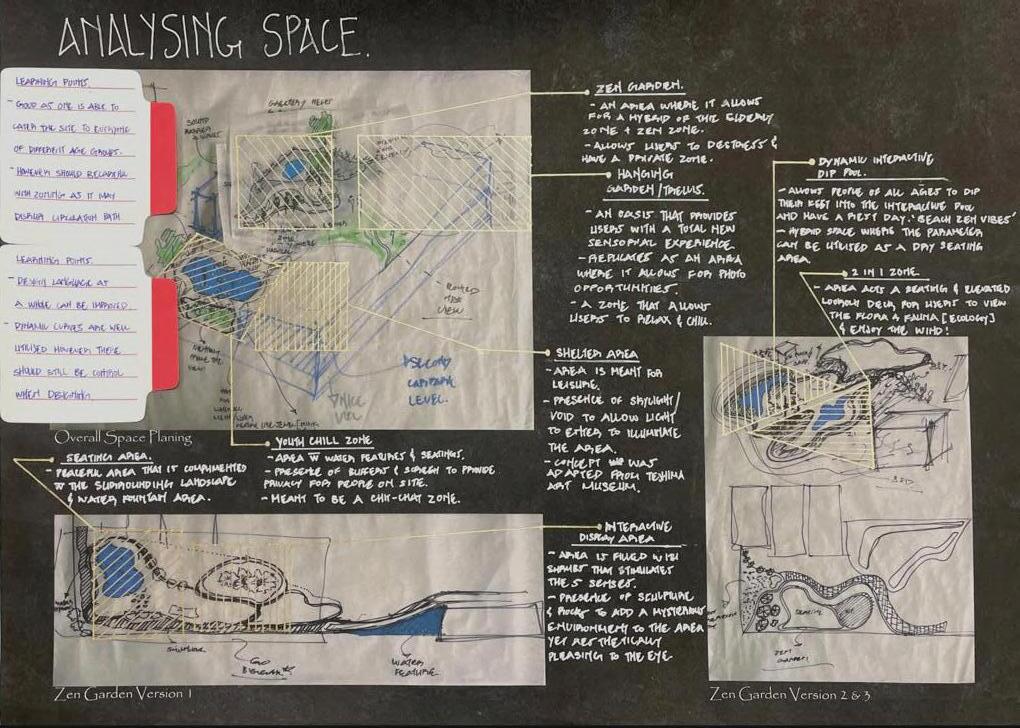 ANALYSING SPACE.
LEARNING POINTS.
- GOOD AS ONE IS ABLE TO
CATER THE SITE TO EVERYONE
OF DIFFERENT AGE GROUPS.
- HOWEVER SHOULD BE CAREFUL
WITH ZONING AS IT MAY
DISRUPT CIRCULATION PATH
LEARNING POINTS.
- DESIGN LANGUAGE AT
A WHOLE CAN BE IMPROVED.
- DYNAMIC CURVES ARE WELL
UTILISED HOWEVER THERE
SHOULD STILL BE CONTROL
WHEN DESIGNING
VIEW
SECOND
CARPARK
LEVEL.
NICE
VIEW
Overall Space Planing
ZEN GARDEN.
- AN AREA WHERE IT ALLOWS
FOR A HYBRID OF THE ELDERLY
ZONE + ZEN ZONE.
- ALLOWS USERS TO DESTRESS &
HAVE A PRIVATE ZONE.
HANGING
GARDEN/TRELLIS.
- AN OASIS THAT PROVIDES
USERS WITH A TOTAL NEW
SENSORIAL EXPERIENCE.
- REPLICATES AS AN AREA
WHERE IT ALLOWS FOR PHOTO
OPPORTUNITIES.
- A ZONE THAT ALLOWS
USERS TO RELAX & CHILL.
DYNAMIC INTERACTIVE
DIP POOL.
- ALLOWS PEOPLE OF ALL AGES TO DIP
THEIR FEET INTO THE INTERACTIVE POOL
AND HAVE A REST DAY. 'BEACH ZEN VIBES'
- HYBRID SPACE WHERE THE PARAMETER
CAN BE UTILISED AS A DRY SEATING
AREA.
2 IN 1 ZONE.
- AREA ACTS A SEATING & ELEVATED
LOOKOUT DECK FOR USERS TO VIEW
THE FLORA & FAUNA [ECOLOGY]
& ENJOY THE WIND!
SHELTER AREA
- AREA IS MEANT FOR
LEISURE.
- PRESENCE OF SKYLIGHT/
VOID TO ALLOW LIGHT
TO ENTER TO ILLUMINATE
THE AREA.
- CONCEPT WAS
ADAPTED FROM TESHIMA
ART MUSEUM.
YOUTH CHILL ZONE
- AREA W WATER FEATURES & SEATINGS.
- PRESENCE OF BUFFERS & SCREEN TO PROVIDE
PRIVACY FOR PEOPLE ON SITE.
- MEANT TO BE A CHIT-CHAT ZONE.
SEATING AREA.
- PEACEFUL AREA THAT IS COMPLIMENTED
W THE SURROUNDING LANDSCAPE
& WATER FOUNTAIN AREA.
INTERACTIVE
DISPLAY AREA
- AREA IS FILLED WITH
SHRUBS THAT STIMULATES
THE 5 SENSES.
- PRESENCE OF SCULPTURE
& ROCKS TO ADD A MYSTERIOUS
ENVIRONMENT TO THE AREA
YET AESTHETICALLY
PLEASING TO THE EYE.
WATER
FEATURE.
Zen Garden Version 1
ZEN
GARDEN
Zen Garden Version 2 & 3.